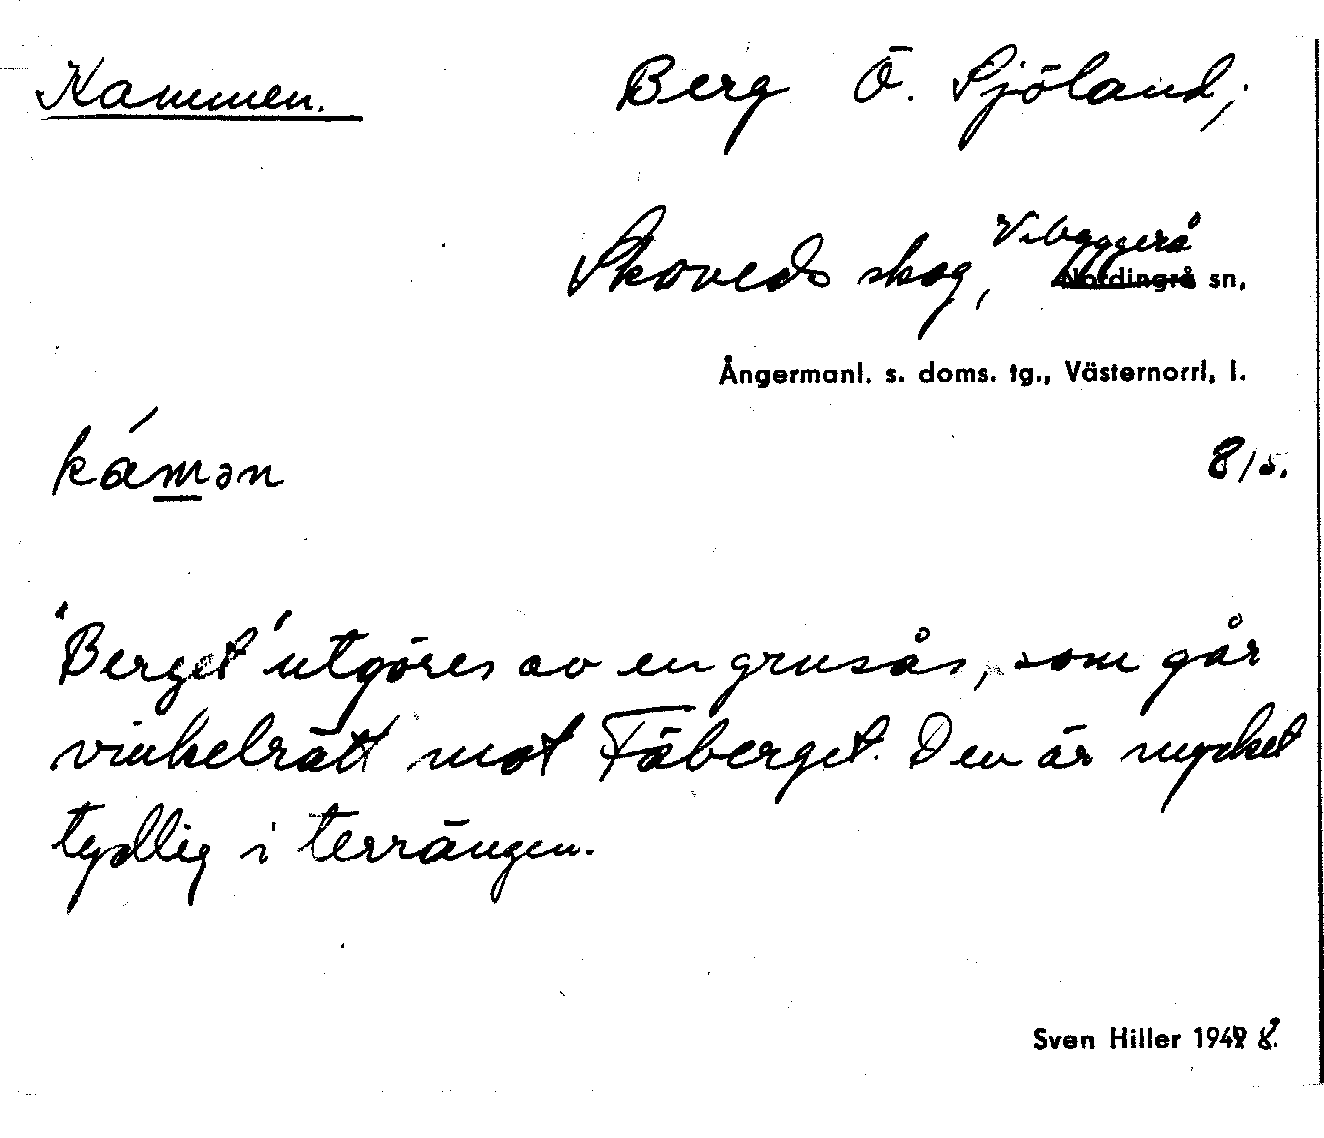 Kammen.
Berg Ö. Sjöland,
Skoveds skog, Vibyggerå
Nordingrå sn,
Ångermanl. s. doms. tg., Västernorrl, l.
kámən
8/5.
"Berget" utgöres av en grusås, som går
vinkelrätt mot Fäberget. Den är mycket
tydlig i terrängen.
Sven Hiller 1949 8.